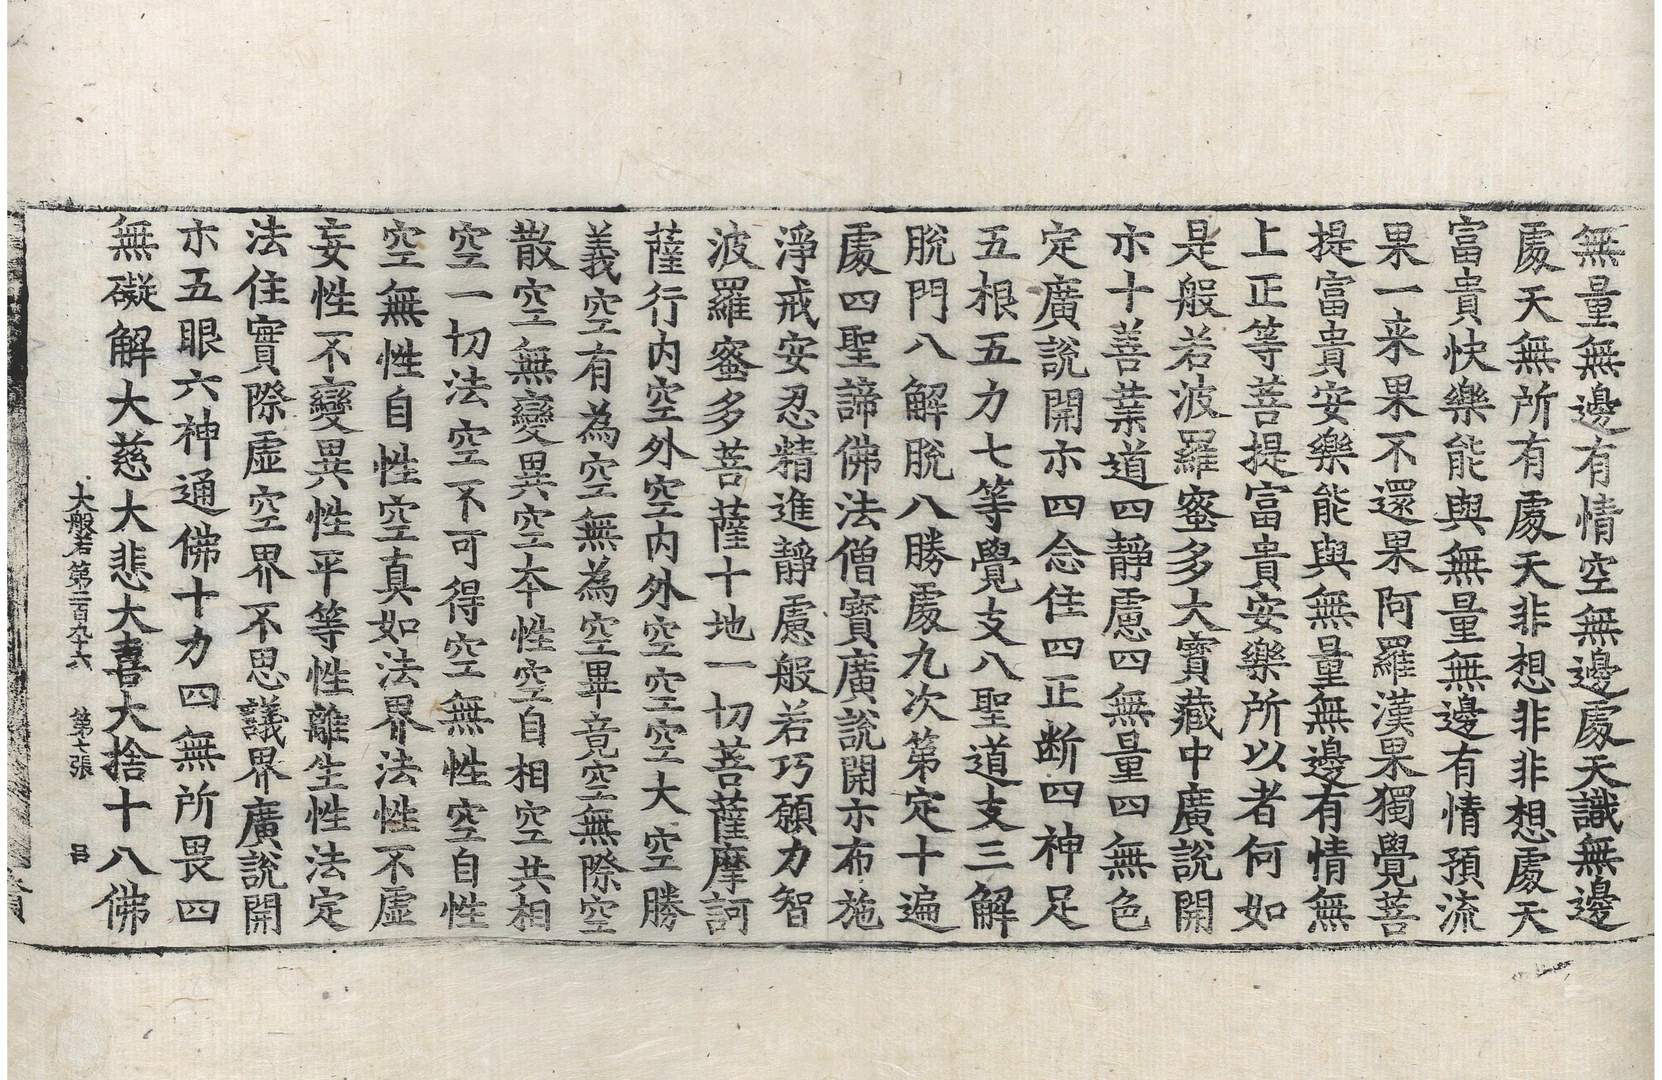 無量無邊有情空無邊處天識無邊
處天無所有處天非想非非想處天
富貴快樂能與無量無邊有情預流
果一来果不還果阿羅漢果獨覺菩
提富貴安樂能與無量無邊有情無
上正等菩提富貴安樂所以者何如
是般若波羅蜜多大寶藏中廣說開
示十善業道四靜慮四無量四無色
定廣說開示四念住四正断四神足
五根五力七等覺支八聖道支三解
脫門八解脫八勝處九次第定十遍
處四聖諦佛法僧寶廣說開示布施
淨戒安忍精進靜慮般若巧願力智
波羅蜜多菩薩十地一切菩薩摩訶
薩行內空外空內外空空空大空勝
義空有為空無為空畢竟空無際空
散空無變異空本性空自相空共相
空一切法空不可得空無性空自性
空無性自性空真如法界法性不虛
妄性不變異性平等性離生性法定
法住實際虛空界不思議界廣說開
示五眼六神通佛十力四無所畏四
無礙解大慈大悲大喜大捨十八佛
大般若第二百九十六 第七張